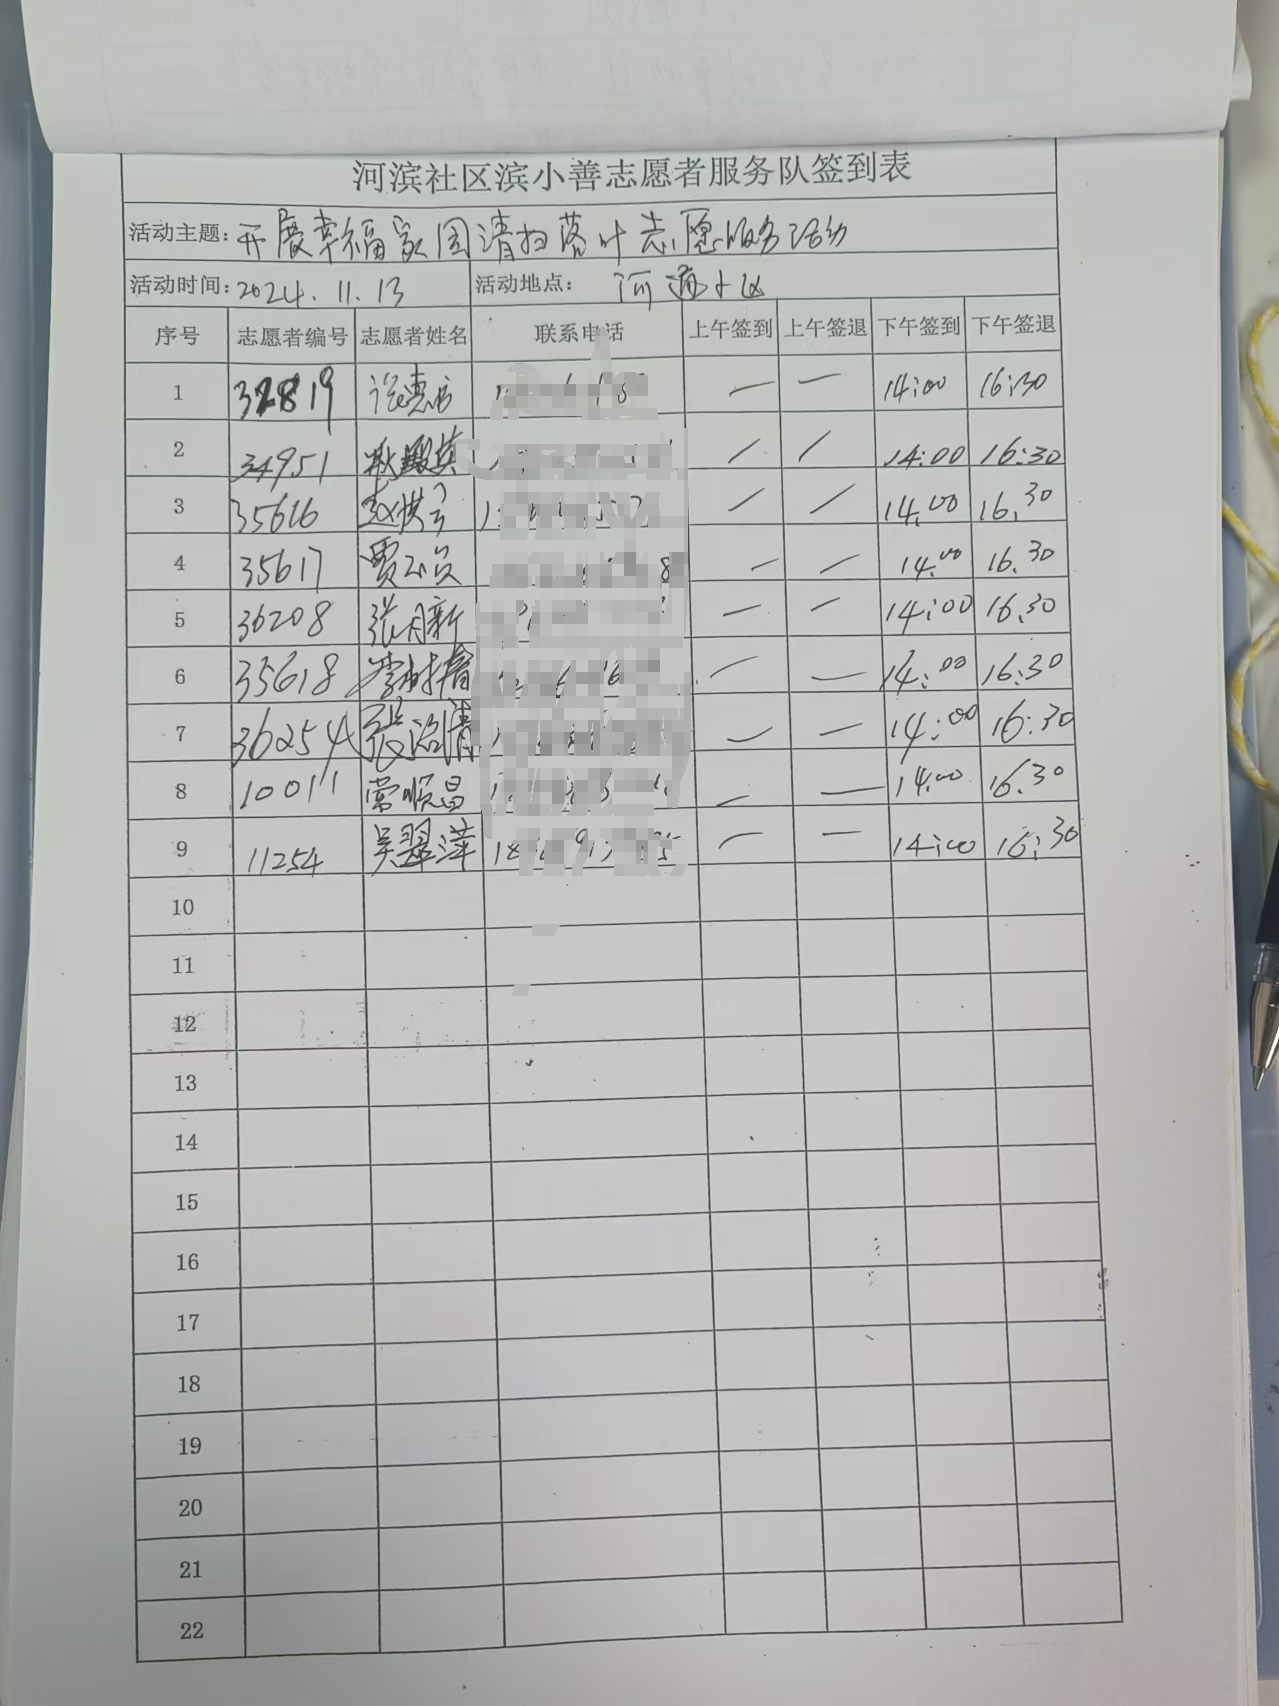 河滨社区滨小善志愿者服务队签到表
活动主题: 开展幸福家园清扫落叶志愿服务活动
活动时间: 2024.11.13 活动地点: 河道小区
序号 志愿者编号 志愿者姓名 联系电话 上午签到 上午签退 下午签到 下午签退
1 32819 — — 14:00 16:30
2 34951 / / 14:00 16:30
3 35616 / / 14.00 16.30
4 35617 — — 14.00 16.30
5 36208 张月新 — — 14:00 16.30
6 35618 — — 14:00 16:30
7 36254 张治清 — — 14:00 16:30
8 10011 常顺昌 — — 14.00 16.30
9 11254 吴翠萍 — — 14:00 16:30
10
11
12
13
14
15
16
17
18
19
20
21
22